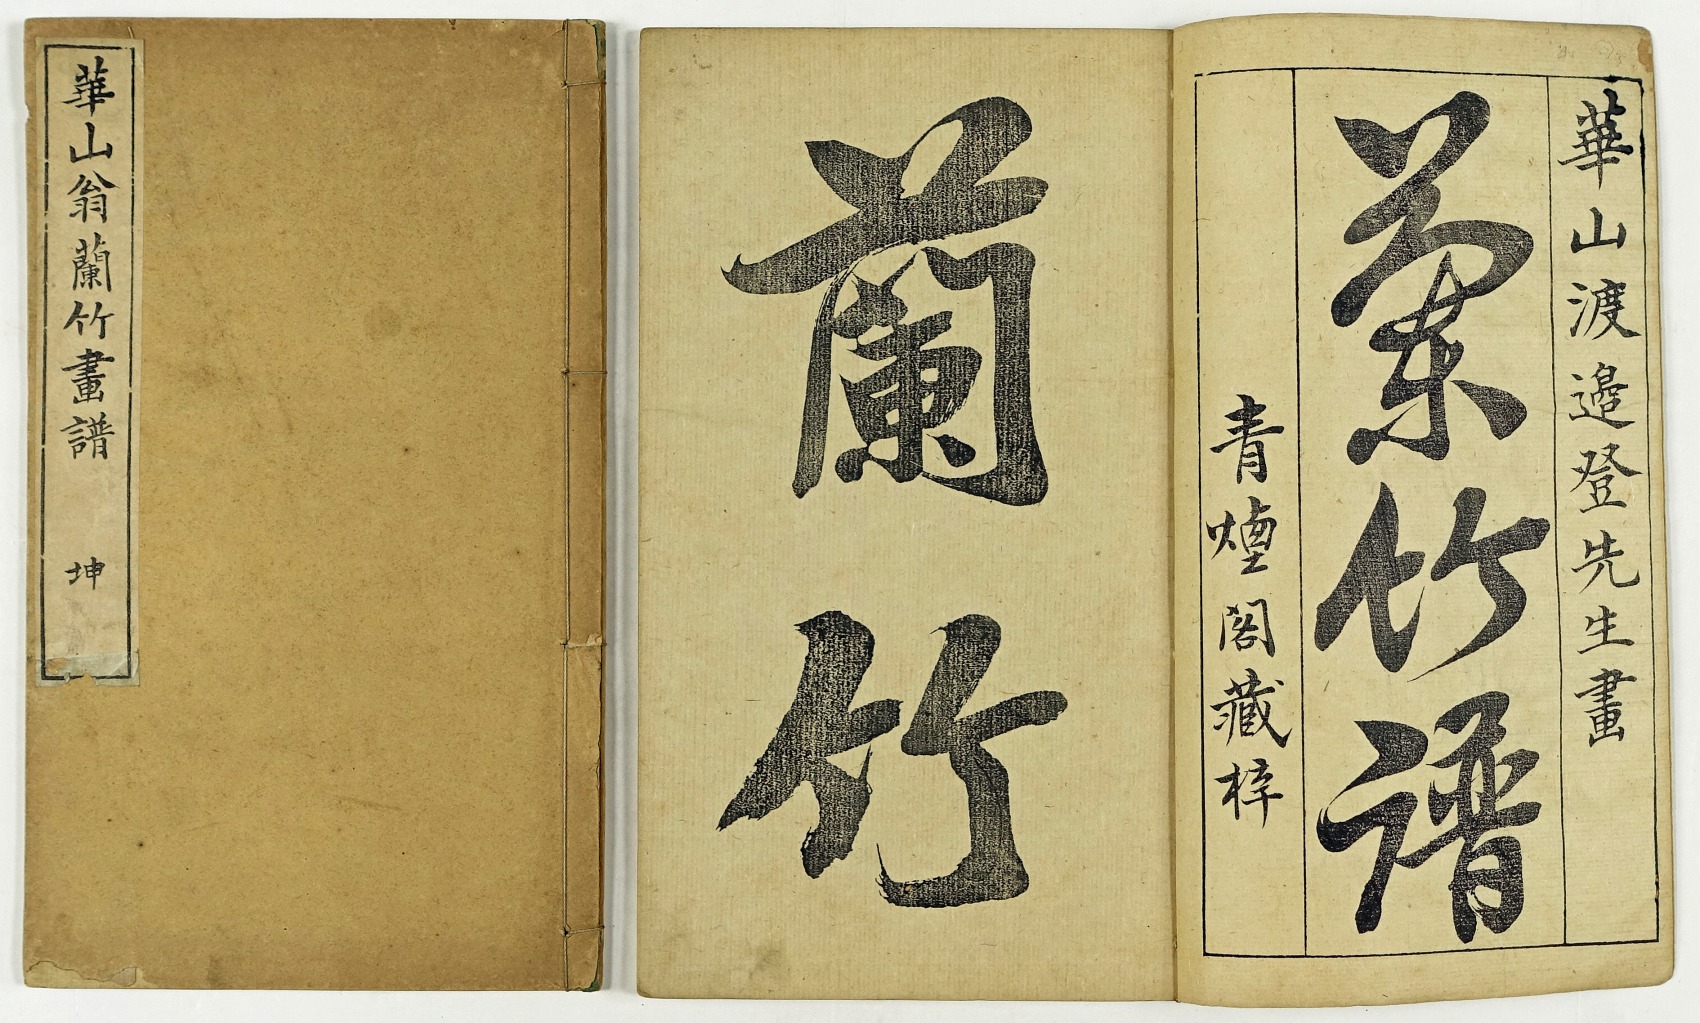 華山翁蘭竹畫譜 坤
華山渡邉登先生畫
蘭竹譜
青煙閣藏梓
蘭竹